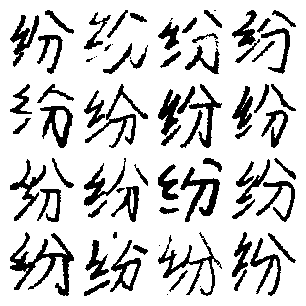 纷纷纷纷
纷纷纷纷
纷纷纷纷
纷纷纷纷